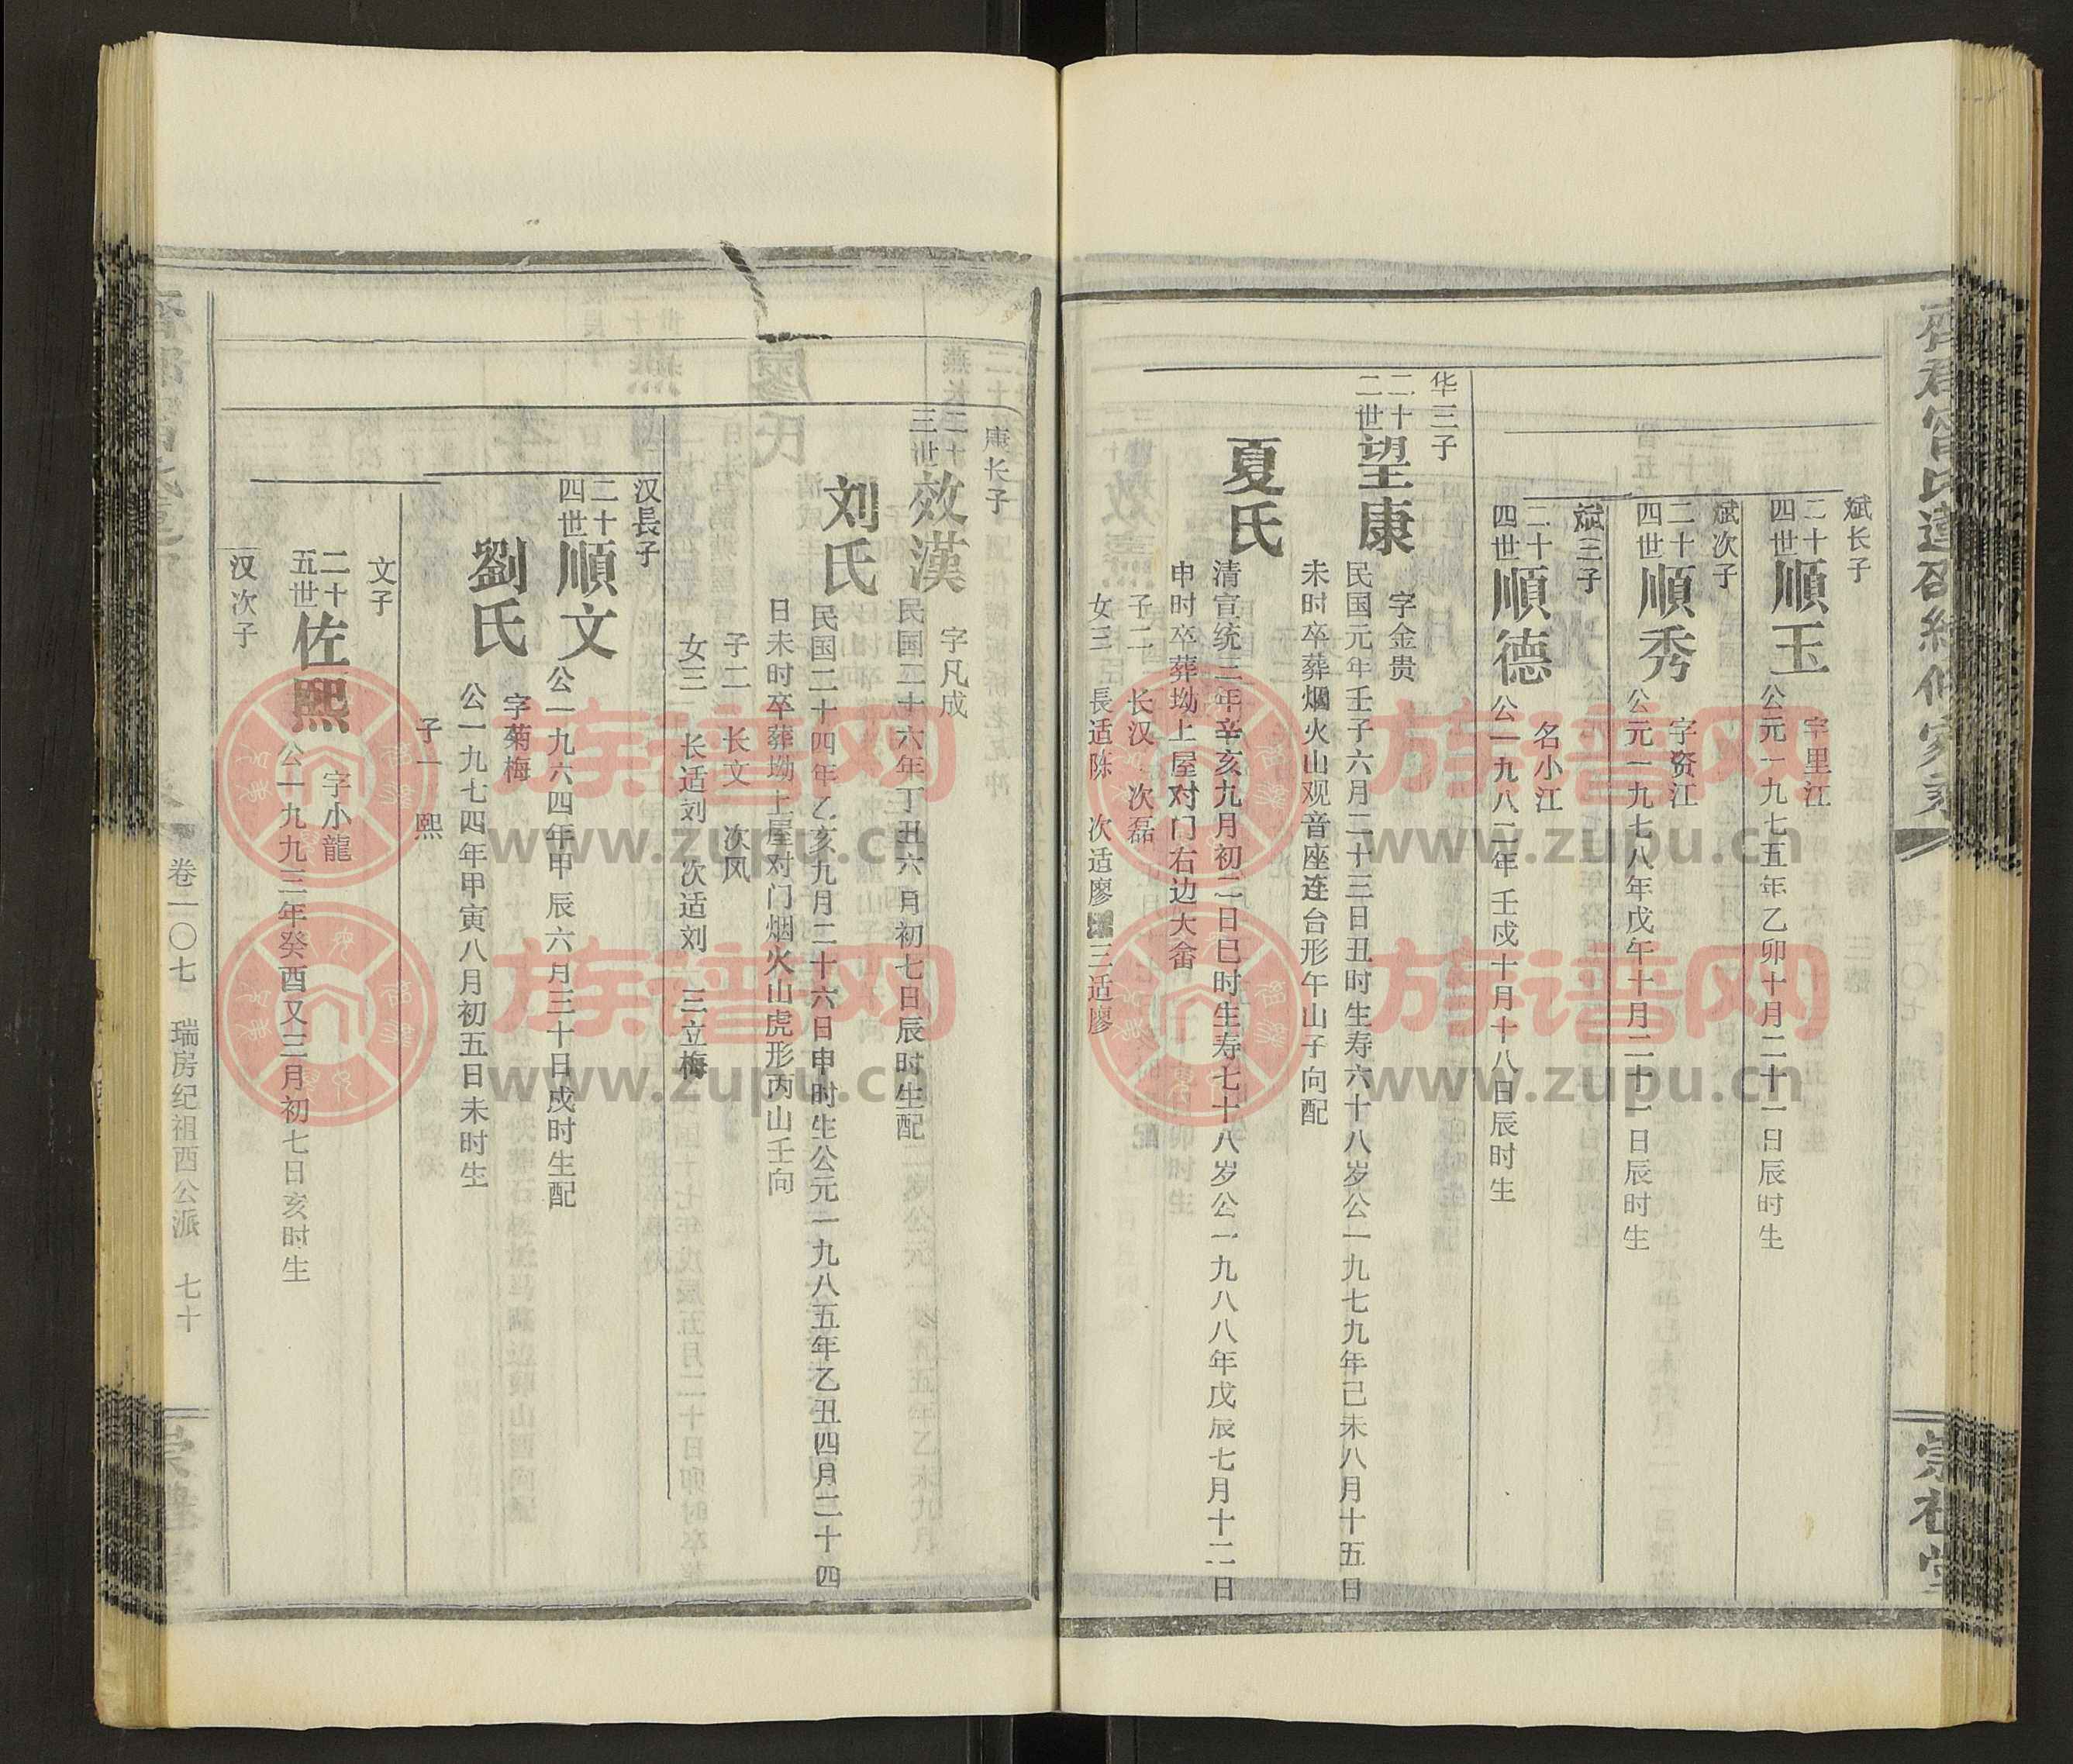 斌长子
二十
四世
順玉
字里江
公元一九七五年乙卯十月二十一日辰时生
斌次子
二十
四世
順秀
字资江
公元一九七八年戊午十月二十一日辰时生
斌三子
二十
四世
順德
名小江
公一九八二年壬戍十月十八日辰时生
华三子
二十
二世
望康
字金贵
民国元年壬子六月二十三日丑时生寿六十八岁公一九七九年己未八月十五日
未时卒葬烟火山观音座连台形午山子向配
夏氏
清宣统三年辛亥九月初二日巳时生寿七十八岁公一九八八年戊辰七月十二日
申时卒葬坳上屋对门右边大畲
子二 长汉 次磊
女三 長适陈 次适廖 三适廖
宗
堂
康长子
二十
三世
效漢
字凡成
民国二十六年丁丑六月初七日辰时生配
刘氏
民国二十四年乙亥九月二十六日申时生公元一九八五年乙丑四月二十四
日未时卒葬坳上屋对门烟火山虎形丙山壬向
子二 长文 次风
女三 长适刘 次适刘 三立梅
汉長子
二十
四世
順文
公一九六四年甲辰六月三十日戍时生配
劉氏
字菊梅
公一九七四年甲寅八月初五日未时生
子一 熙
文子
二十
五世
佐熙
字小龍
公一九九三年癸酉又三月初七日亥时生
汉次子
卷一〇七 瑞房纪祖酉公派 七十
族谱网
www.zupu.cn
族谱网
www.zupu.cn
族谱网
www.zupu.cn
族谱网
www.zupu.cn